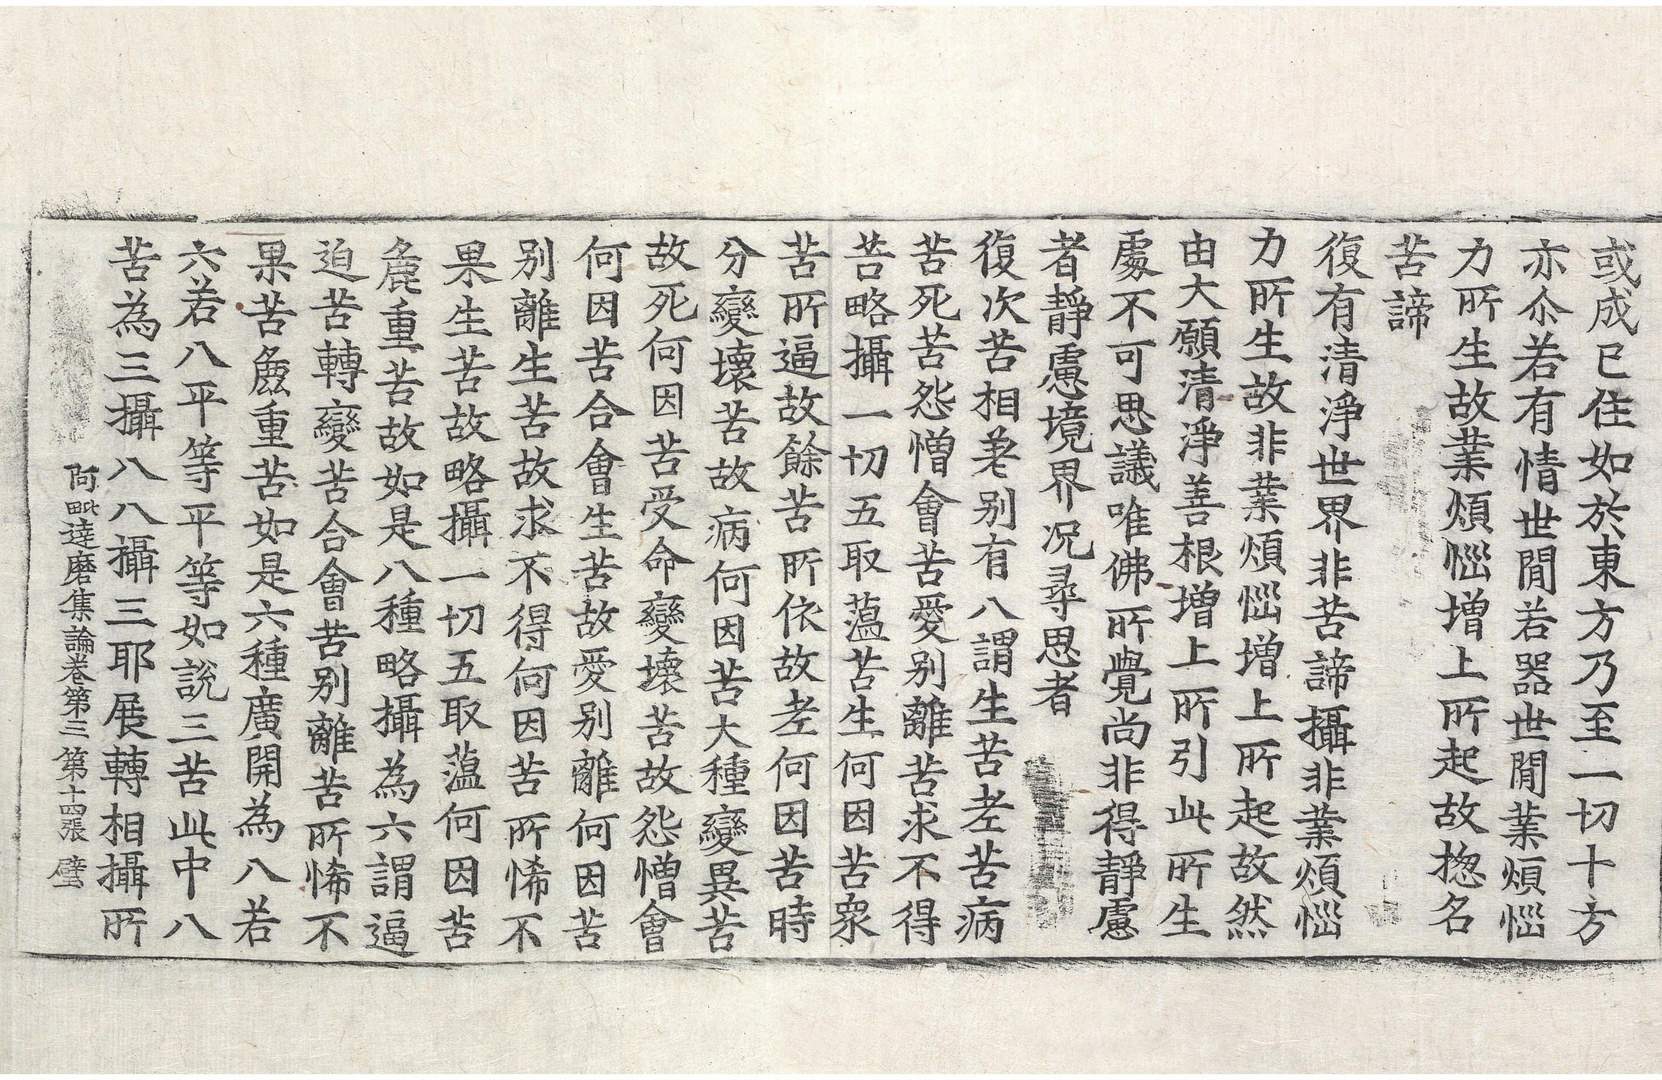 或成已住如於東方乃至一切十方
亦尒若有情世間若器世間業煩惱
力所生故業煩惱增上所起故揔名
苦諦
復有清淨世界非苦諦攝非業煩惱
力所生故非業煩惱增上所起故然
由大願清淨善根增上所引此所生
處不可思議唯佛所覺尚非得靜慮
者靜慮境界况尋思者
復次苦相差别有八謂生苦老苦病
苦死苦怨憎會苦愛别離苦求不得
苦略攝一切五取蘊苦生何因苦衆
苦所逼故餘苦所依故老何因苦時
分變壞苦故病何因苦大種變異苦
故死何因苦受命變壞苦故怨憎會
何因苦合會生苦故愛别離何因苦
别離生苦故求不得何因苦所悕不
果生苦故略攝一切五取蘊何因苦
麁重苦故如是八種略攝為六謂逼
迫苦轉變苦合會苦别離苦所悕不
果苦麁重苦如是六種廣開為八若
六若八平等平等如說三苦此中八
苦為三攝八八攝三耶展轉相攝所
阿毗達磨集論卷第三 第十四張 壁